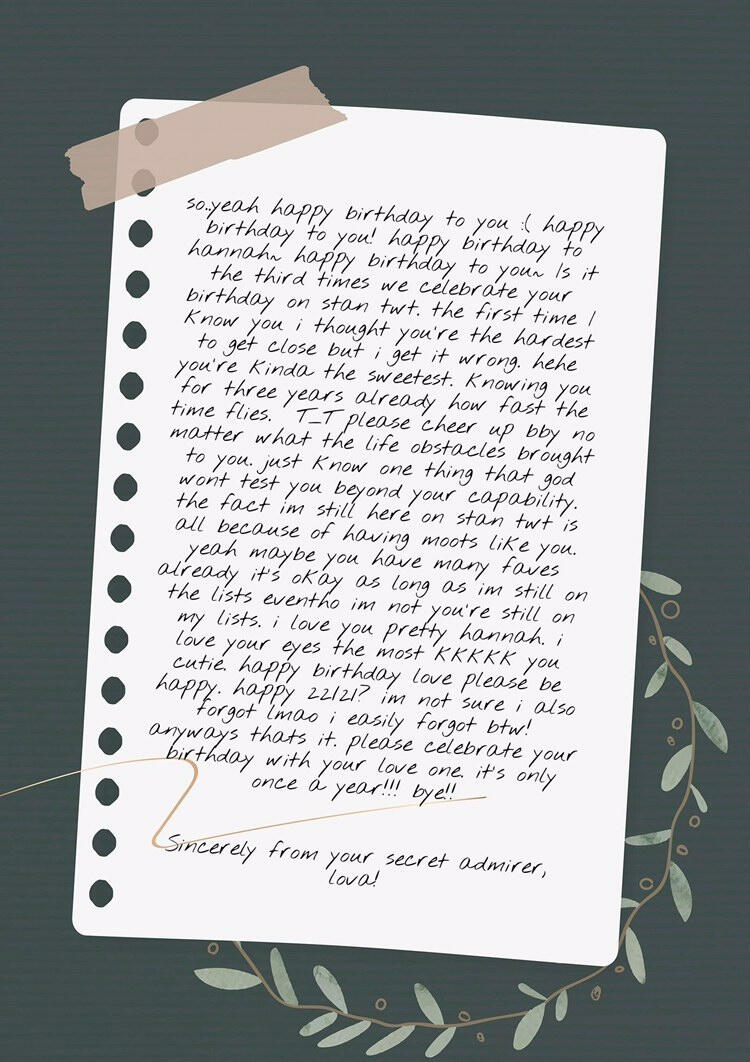 so..yeah happy birthday to you :( happy
birthday to you! happy birthday to
hannah~ happy birthday to you~ Is it
the third times we celebrate your
birthday on stan twt. the first time I
know you i thought you're the hardest
to get close but i get it wrong. hehe
you're kinda the sweetest. Knowing you
for three years already how fast the
time flies. T_T please cheer up bby no
matter what the life obstacles brought
to you. just know one thing that god
wont test you beyond your capability.
the fact im still here on stan twt is
all because of having moots like you.
yeah maybe you have many faves
already it's okay as long as im still on
the lists eventho im not you're still on
my lists. i love you pretty hannah. i
love your eyes the most KKKKK you
cutie. happy birthday love please be
happy. happy 22/21? im not sure i also
forgot lmao i easily forgot btw!
anyways thats it. please celebrate your
birthday with your love one. it's only
once a year!!! bye!!
Sincerely from your secret admirer,
lova!